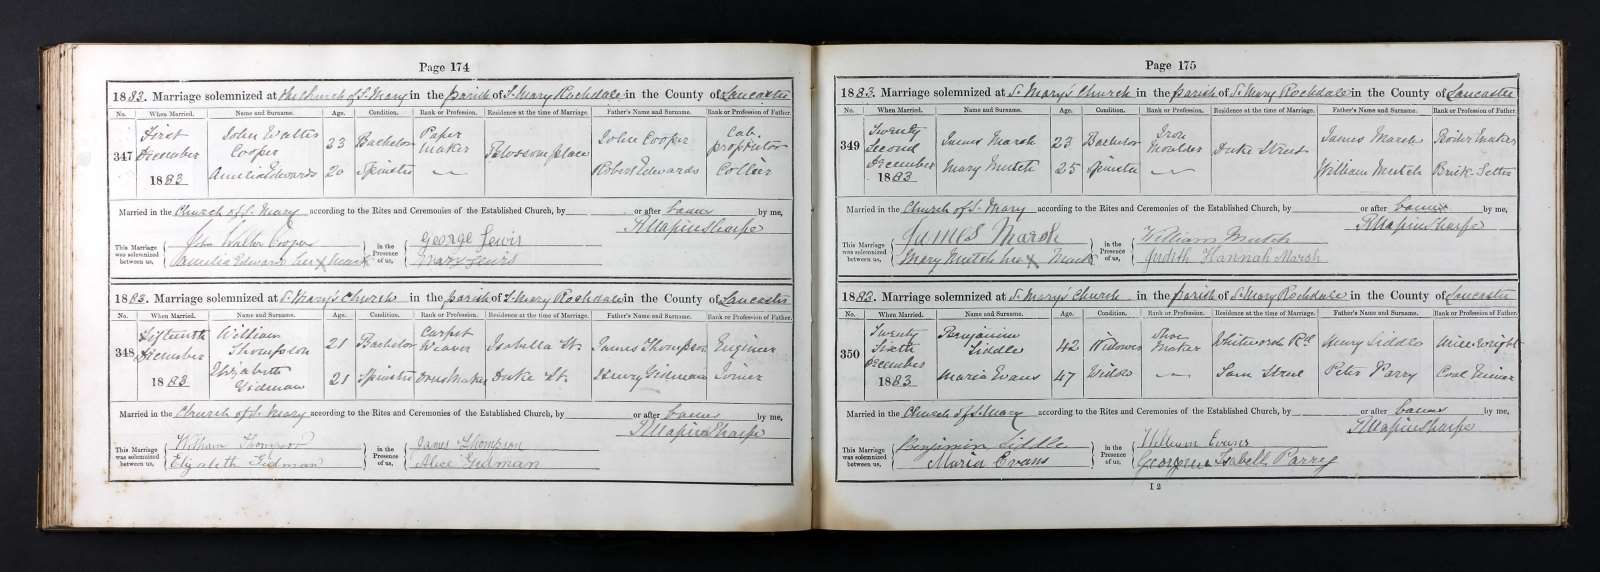 Page 174
1883. Marriage solemnized at the Church of S. Mary in the parish of S. Mary Rochdale in the County of Lancaster
No. When Married. Name and Surname. Age. Condition. Rank or Profession. Residence at the time of Marriage. Father's Name and Surname. Rank or Profession of Father.
347 First December 1883 John Walter Cooper 23 Bachelor Paper Maker place John Cooper Cab proprietor
Amelia Edwards 20 Spinster Robert Edwards Collier
Married in the Church of S. Mary according to the Rites and Ceremonies of the Established Church, by or after banns by me,
This Marriage was solemnized between us, John Walter Cooper in the Presence of us, George Lewis
Amelia Edwards her x mark Mary Lewis
1883. Marriage solemnized at S. Mary's Church in the parish of S. Mary Rochdale in the County of Lancaster
No. When Married. Name and Surname. Age. Condition. Rank or Profession. Residence at the time of Marriage. Father's Name and Surname. Rank or Profession of Father.
348 Fifteenth December 1883 William Thompson 21 Bachelor Carpet Weaver Isabella St. James Thompson Engineer
Elizabeth Gidman 21 Spinster Dress Maker Duke St. Henry Gidman Joiner
Married in the Church of S. Mary according to the Rites and Ceremonies of the Established Church, by or after banns by me,
This Marriage was solemnized between us, William Thompson in the Presence of us, James Thompson
Elizabeth Gidman Alice Gidman
Page 175
1883. Marriage solemnized at S. Mary's Church in the parish of S. Mary Rochdale in the County of Lancaster
No. When Married. Name and Surname. Age. Condition. Rank or Profession. Residence at the time of Marriage. Father's Name and Surname. Rank or Profession of Father.
349 Twenty Second December 1883 James Marsh 23 Bachelor Iron Moulder Duke Street James Marsh Boiler Maker
Mary Mutch 25 Spinster William Mutch Brick-Setter
Married in the Church of S. Mary according to the Rites and Ceremonies of the Established Church, by or after banns by me,
This Marriage was solemnized between us, James Marsh in the Presence of us, William Mutch
Mary Mutch her x Mark Judith Hannah Marsh
1883. Marriage solemnized at S. Mary's Church in the parish of S. Mary Rochdale in the County of Lancaster
No. When Married. Name and Surname. Age. Condition. Rank or Profession. Residence at the time of Marriage. Father's Name and Surname. Rank or Profession of Father.
350 Twenty Sixth December 1883 Benjamin Siddle 42 Widower Shoe Maker Whitworth Rd. Henry Siddle
Maria Evans 47 Widow Street Peter Parry Coal Miner
Married in the Church of S. Mary according to the Rites and Ceremonies of the Established Church, by or after banns by me,
This Marriage was solemnized between us, Benjamin Siddle in the Presence of us, William Evans
Maria Evans Isabella Parry
I 2